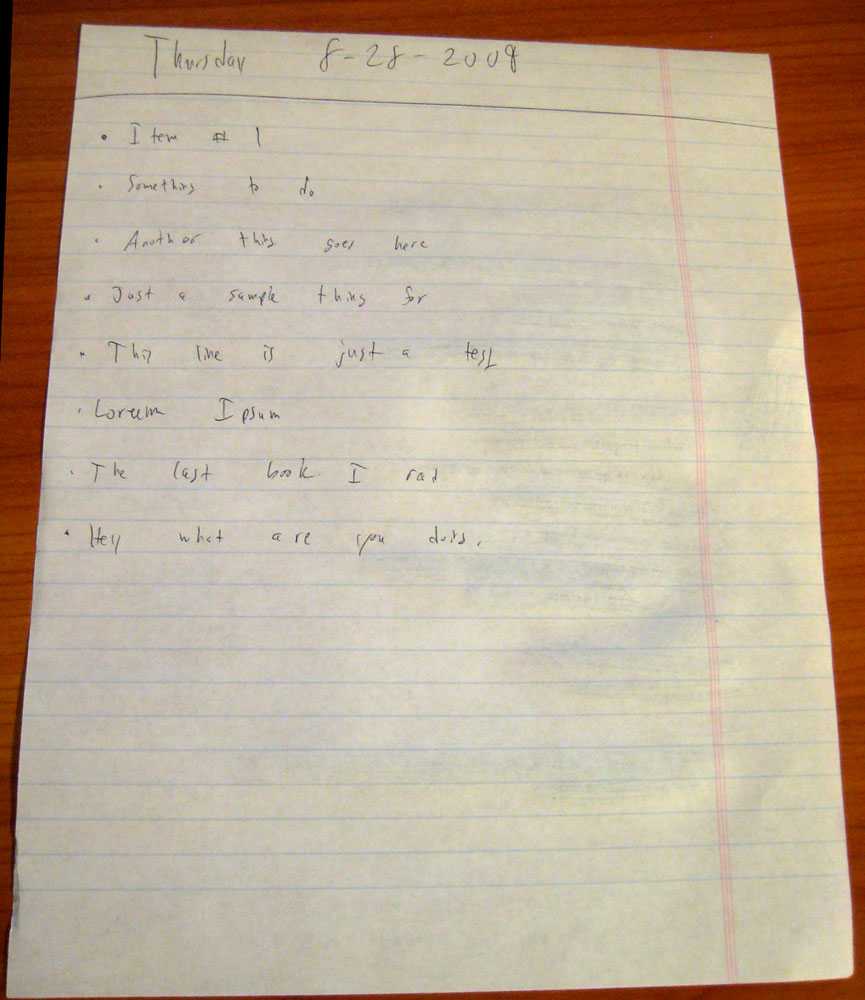 Thursday 8-28-2008
• Item # 1
• Something to do
• Another thing goes here
• Just a sample thing for
• This line is just a test
• Loreum Ipsum
• The last book I rad
• Hey what are you doing.